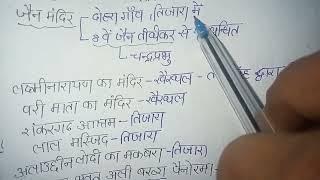 जैन मंदिर
गाँव, तिजारा में
8वें जैन तीर्थंकर से
चन्द्रप्रभु
लक्ष्मीनारायण का मंदिर - खैरथल -
परी माता का मंदिर - खैरथल
शंकरगढ़ आश्रम - तिजारा
लाल मस्जिद - तिजारा
अलाउद्दीन लोदी का मकबरा - तिजारा
अली बख्श पैनोरमा -